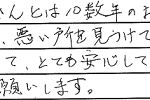 さんとは10数年のお
、悪い所を見つけて
て、とても安心して
願いします。